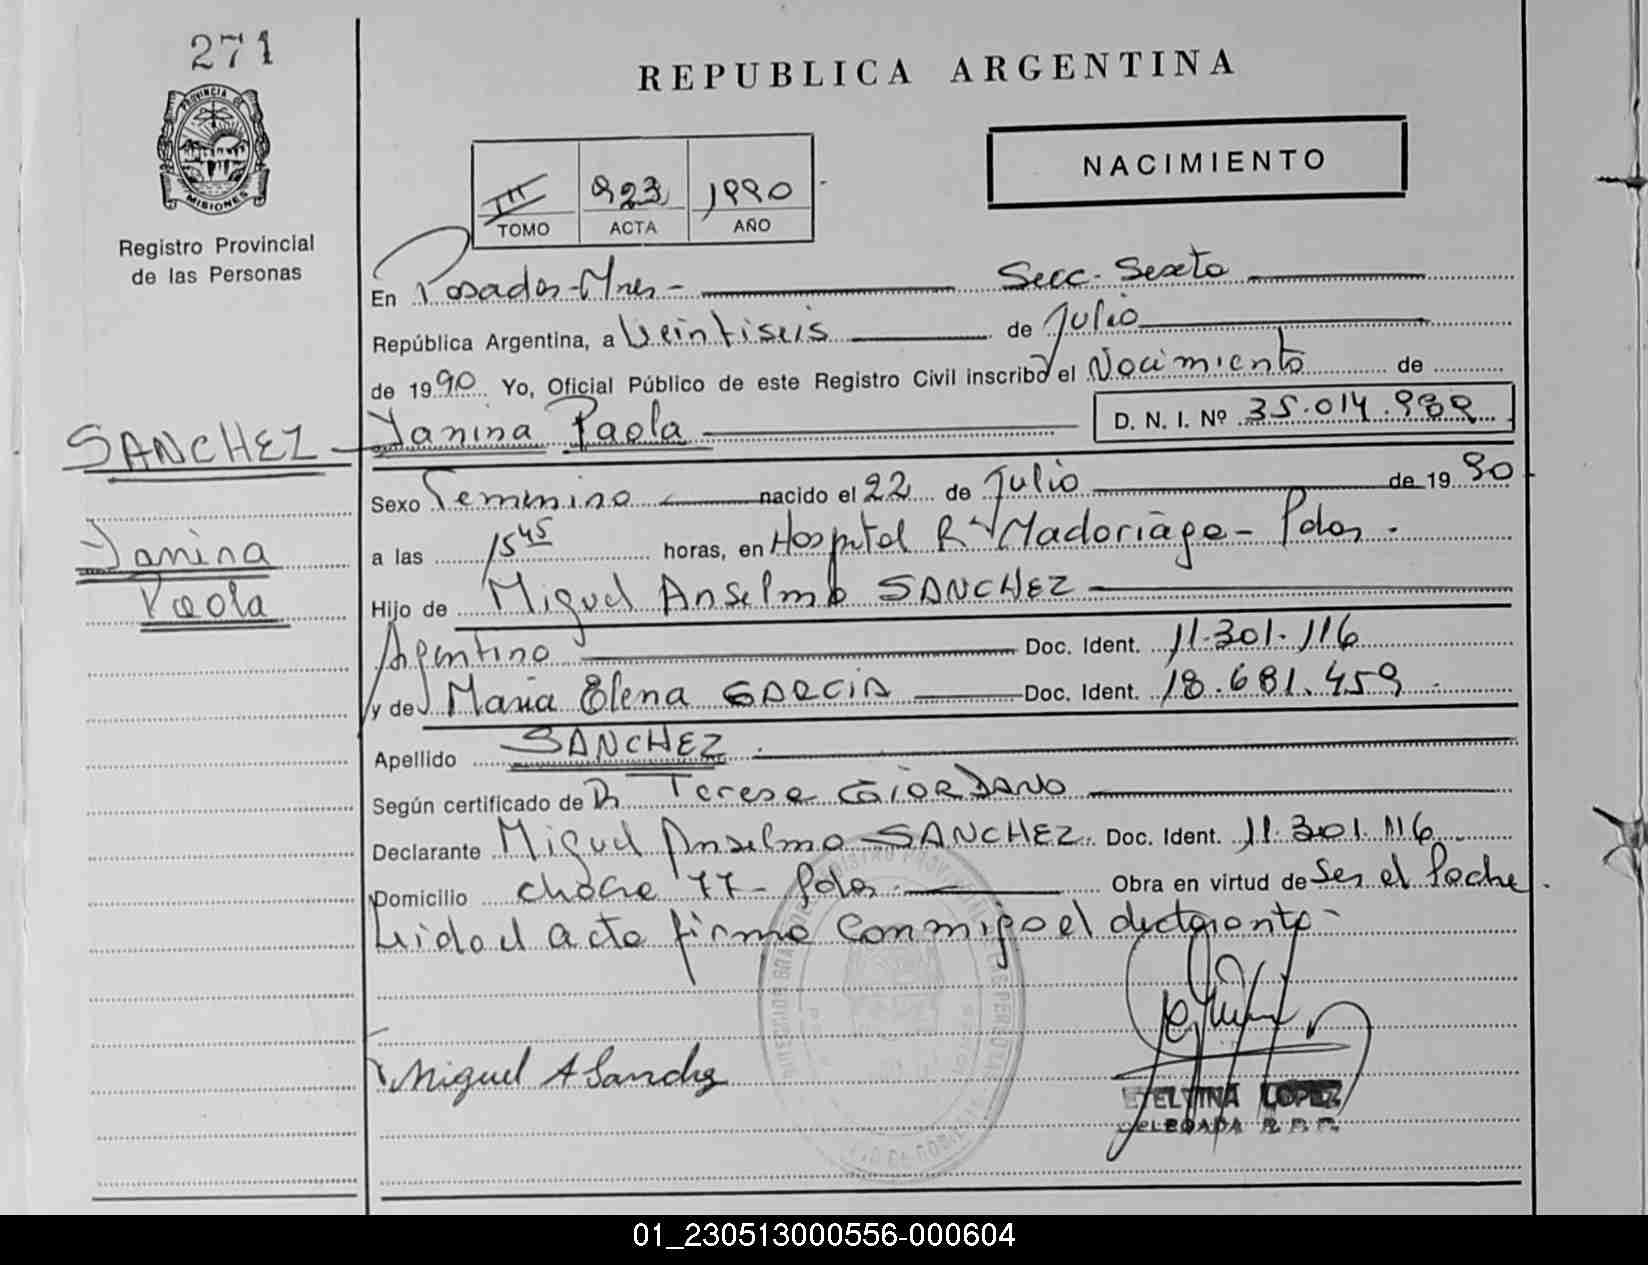 271
PROVINCIA DE
MISIONES
Registro Provincial
de las Personas
REPUBLICA ARGENTINA
NACIMIENTO
III 923 1990
TOMO ACTA AÑO
En Posadas-Mnes- Secc. Sexta
República Argentina, a Veintiseis de Julio
de 1990 Yo, Oficial Público de este Registro Civil inscribo el Nacimiento de
SANCHEZ Yanina Paola D. N. I. Nº 35.014.939
Sexo Femenino nacido el 22 de Julio de 1990
Yanina
a las 15 45 horas, en Hospital R. Madariaga - Pdas.
Paola
Hijo de Miguel Anselmo SANCHEZ
Argentino Doc. Ident. 11.301.116
y de Maria Elena GARCIA Doc. Ident. 18.681.459
Apellido SANCHEZ.
Según certificado de Teresa GIORDANO
Declarante Miguel Anselmo SANCHEZ. Doc. Ident. 11.301.116
Domicilio 77- Pdas. Obra en virtud de Ser el Padre.
Leida el acta firma conmigo el declarante-
Miguel A Sanchez
ETELVINA LOPEZ
DELEGADA R.P.P.
01_230513000556-000604